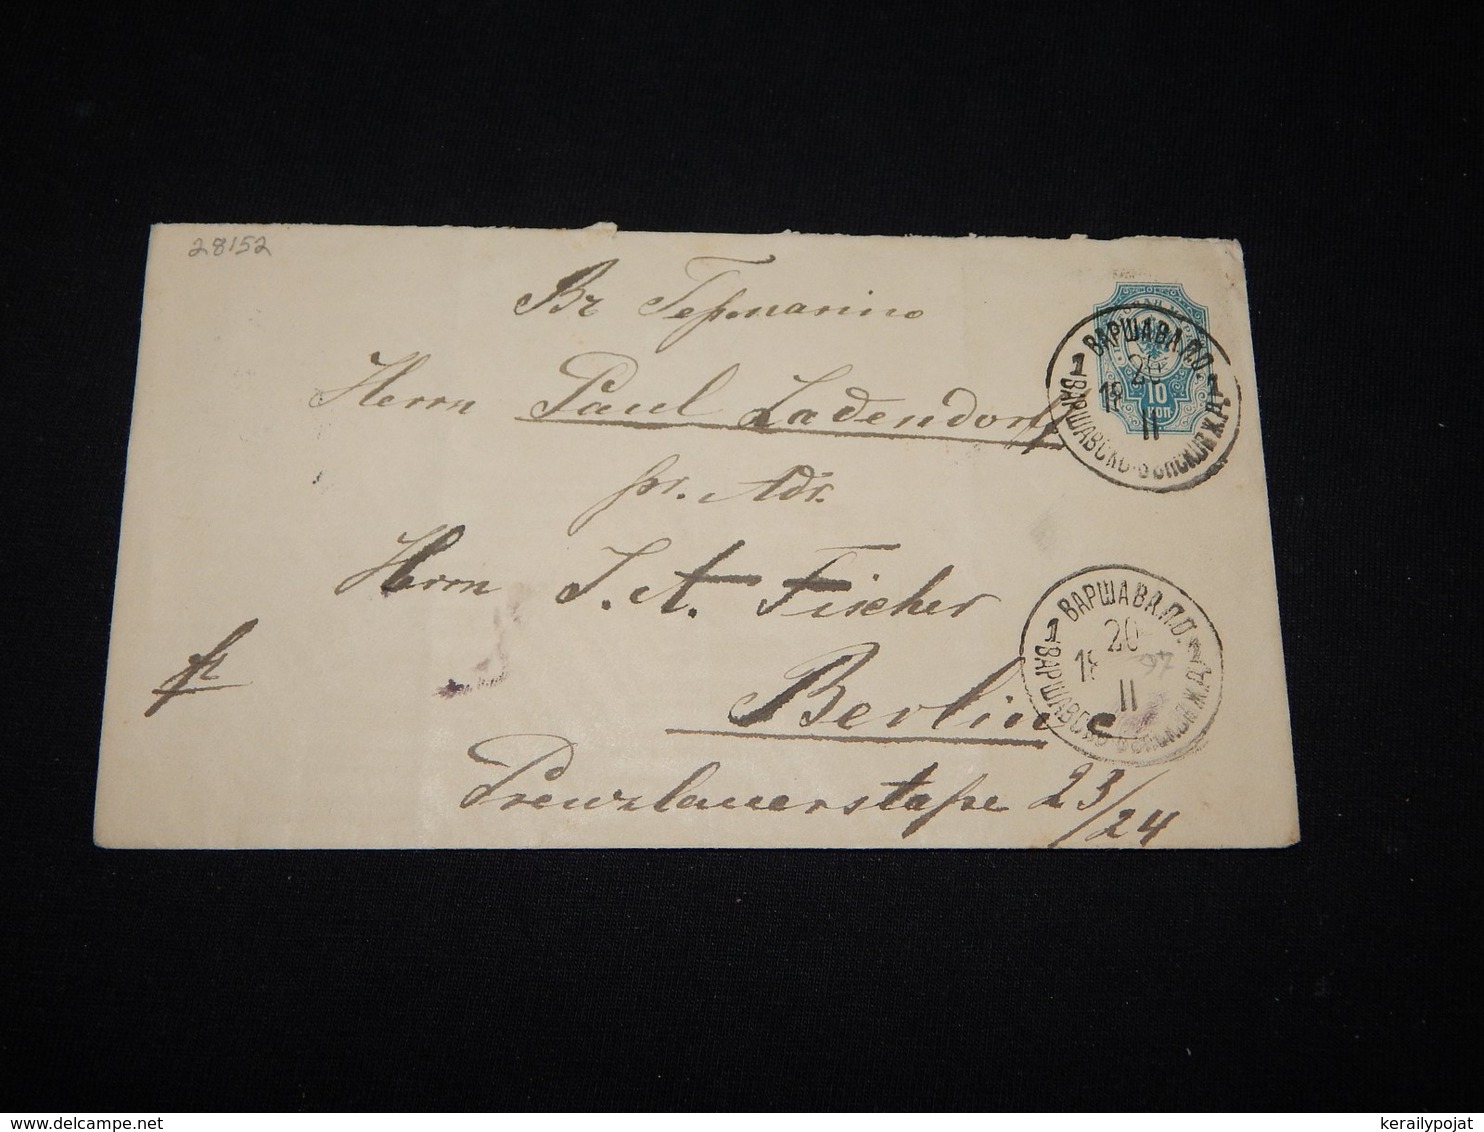 28152
Въ Германію
Herrn Paul Ladendorf
pr. Adr.
Herrn J. A. Fischer
Berlin C
Prenzlauerstraße 23/24
fr
10
КОП
ВАРШАВА.П.О.
1 1
20
18
II
ВАРШАВСКО-ВѢНСКОЙ Ж.Д.
ВАРШАВА.П.О.
1 1
20
18 97
II
ВАРШАВСКО-ВѢНСКОЙ Ж.Д.
© delcampe.net
kerailypojat